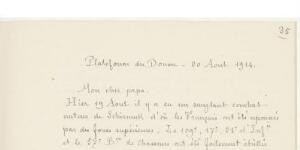 35
Plateforme du Donon - 20 Août 1914.
Mon cher papa.
Hier 19 Août il y a eu un sanglant combat
autour de Schirmeck, d'où le Français ont été repoussés
par des forces supérieures. Le 109e, 17e, 21e d'Infie
et le 57e Bon de chasseurs ont été fortement